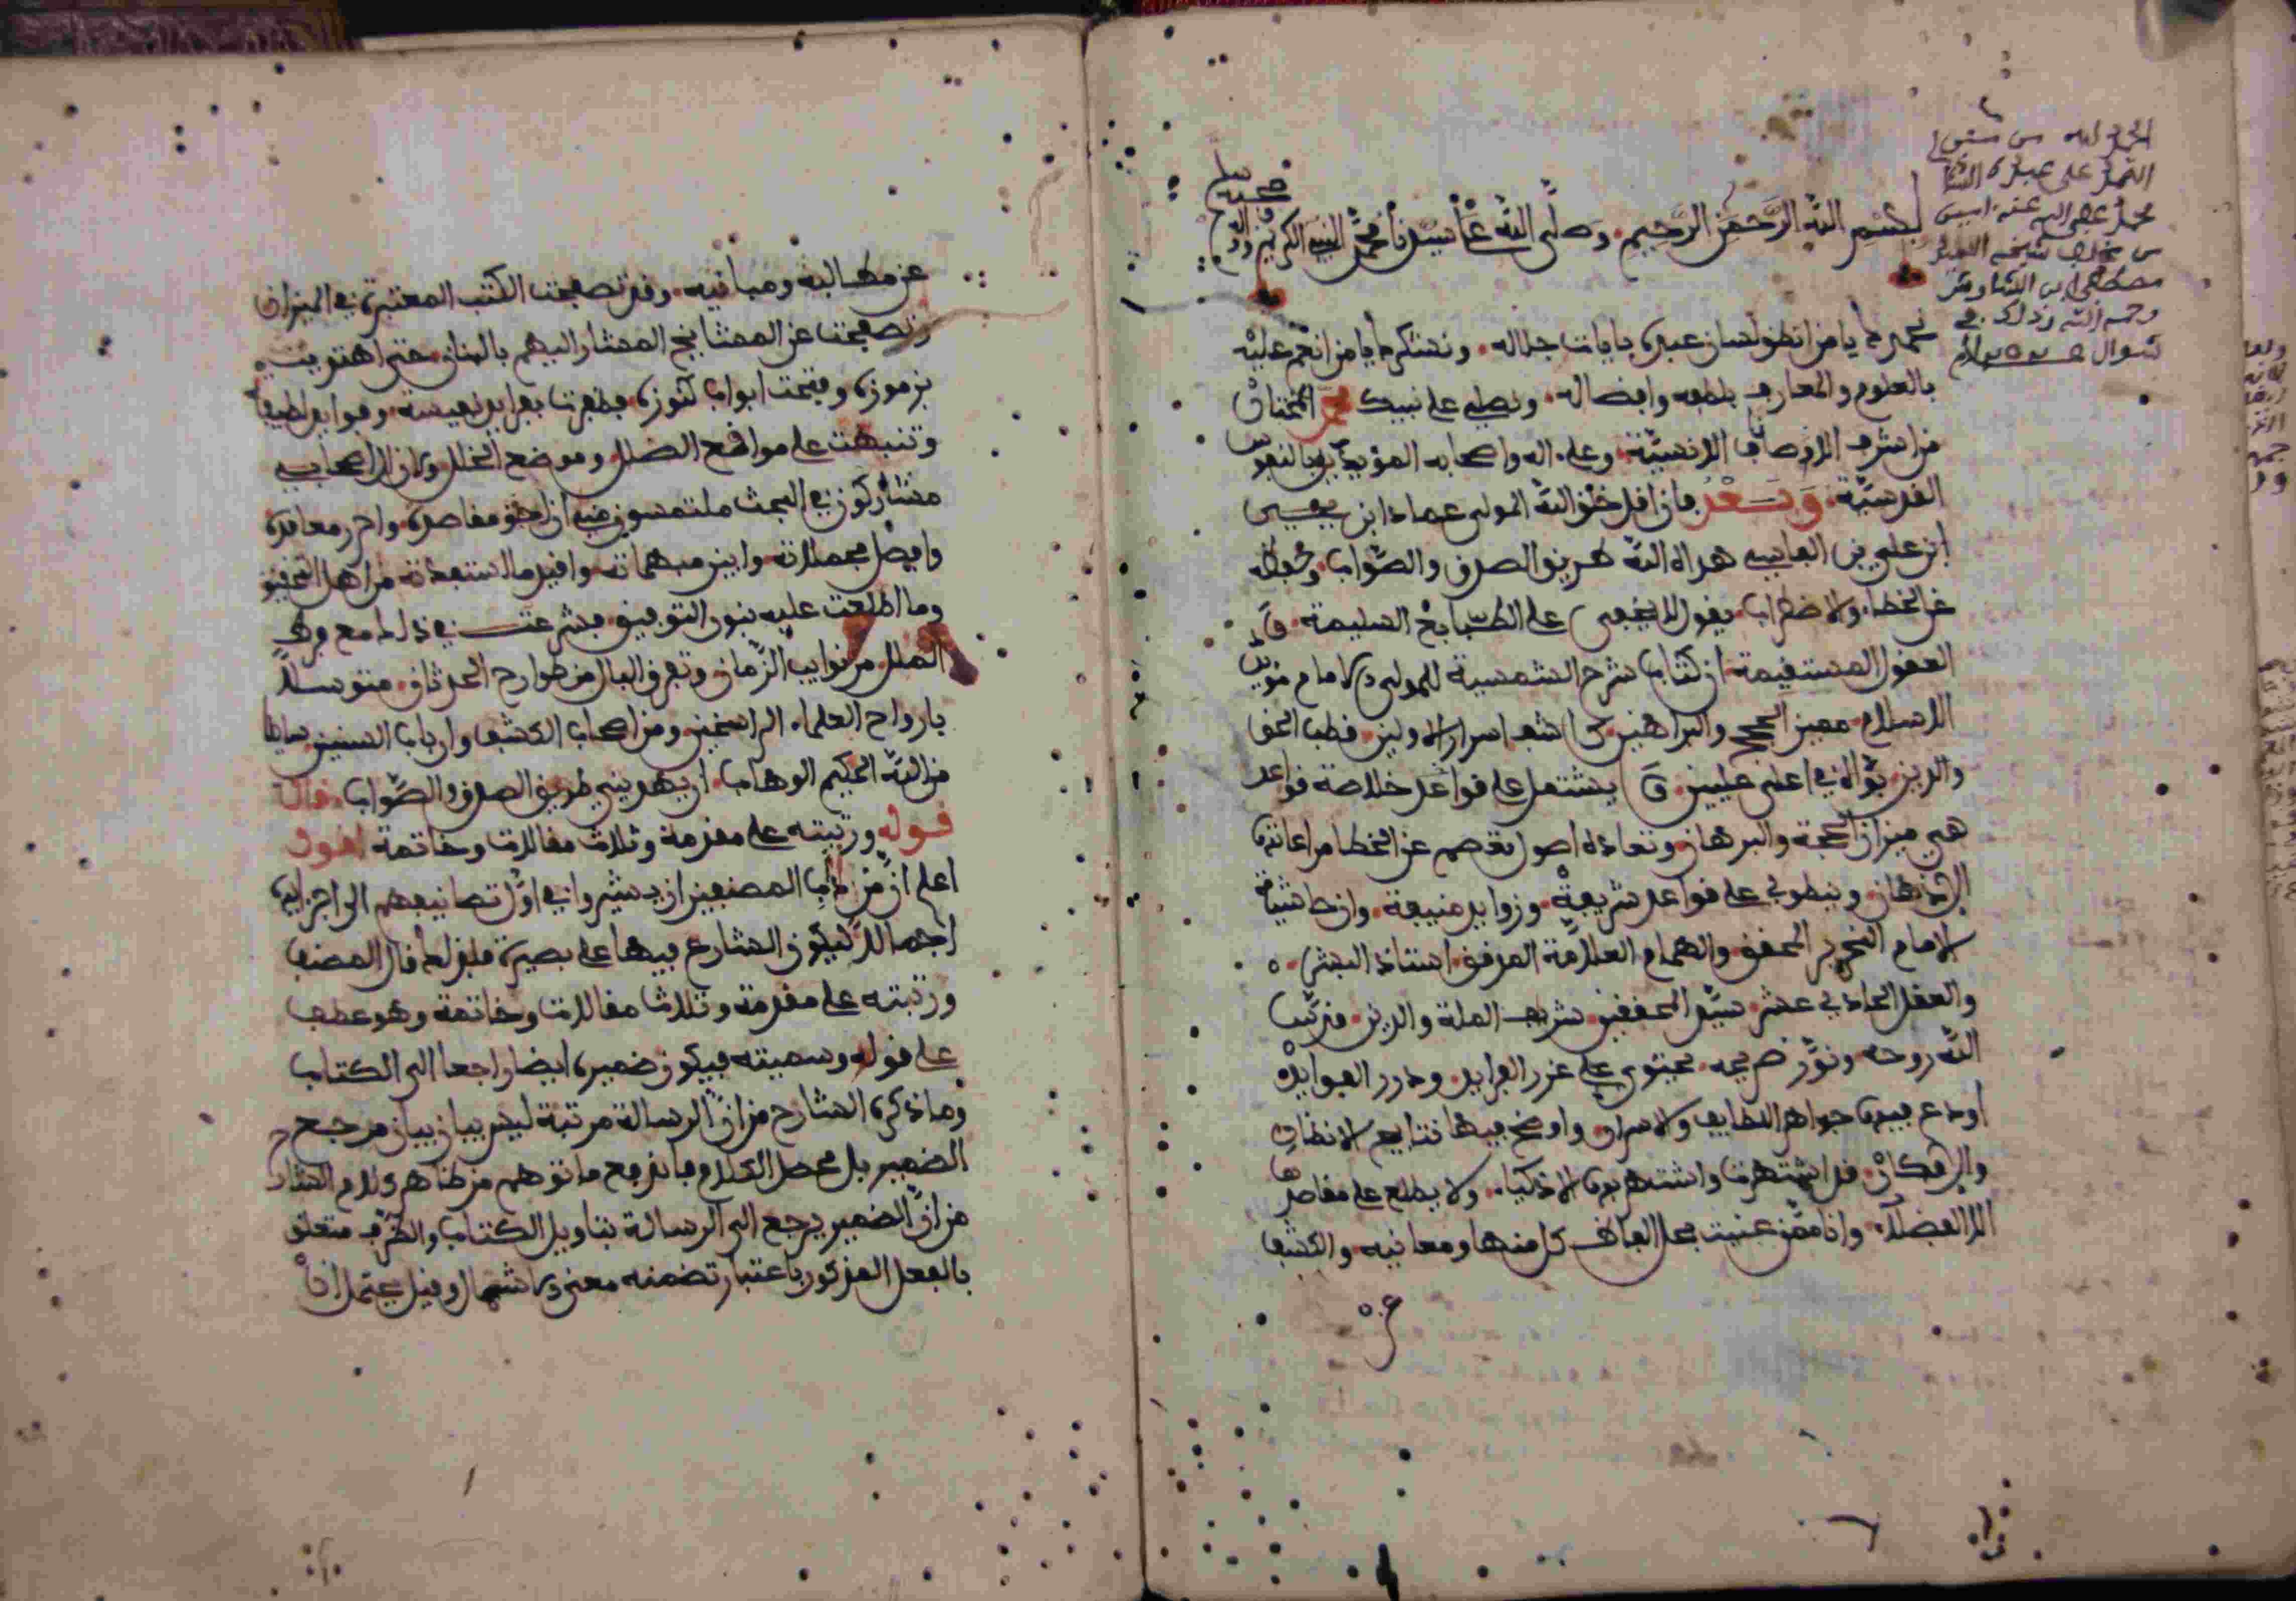 بسم الله الرحمن الرحيم وصلى الله على سيدنا محمد النبي الكريم وءاله
وصحبه وسلم
نحمدك يا من انطق لسان عبده بايات جلاله ونشكرك يا من انعم عليه
بالعلوم والمعارف بلطفه وافضاله ونصلي على نبيك محمد المختار
من اشرف الاوصاف الانسية وعلى اله واصحابه المؤيدين بالنفوس
القدسية وبعد فان اقل خلق الله المولى عماد ابن يحيى
ابن علي بن الفارسي هداه الله طريق الصدق والصواب
عن الخطا والاضطراب يقول لا يخفى على الطبايع السليمة
العقول المستقيمة ان كتاب شرح الشمسية للمولى الامام مؤيد
الاسلام مبين الحجج والبراهين كاشف اسرار الاولين قطب الحق
والدين بوأه في اعلى عليين يشتمل على قواعد خلاصة قواعد
هي ميزان الحجة والبرهان وتعاداه اصول تعصم عن الخطا مراعاتها
الاذهان وينطوي على قواعد شريفة وزوايد منيفة وان حاشية
الامام النحرير المحقق والهمام العلامة المدقق استاذ البشر
والعقل الحادي عشر سيد المحققين شريف الملة والدين
الله روحه ونور ضريحه يحتوي على غرر الفرايد ودرر الفوايد
اودع فيها جواهر اللطايف والاسرار واوضح فيها نتايج الانظار
والافكار قد اشتهرت واشتهر بها الاذكياء ولا يطلع على مقاصدها
الا الفضلاء وانا ممن عنيت بحل الفاظ كل منهما ومعانيه والكشف
عن
الحمد لله
محمد
مصطفى ابن
رحمه الله
شوال
عن مطالبه ومبانيه وقد تصفحت الكتب المعتبرة في الميزان
وتصفحت عن المشايخ المشار اليهم بالبنان حتى اهتديت
برموزه وفتحت ابواب كنوزه فظفرت بفرايد نفيسة وفوايد لطيفة
وتنبهت على مواقع الضلل وموضع الخلل وكان الاصحاب
مشاركون في البحث ملتمسون منه ان احقق مقاصده واحرر معاقده
وافصل مجملاته وابين مبهماته وافيد ما استفدته من اهل التحقيق
وما اطلعت عليه بنور التوفيق فشرعت في ذلك مع فرط
الملل من نوايب الزمان وتفرق البال من طوارح الحدثان متوسلا
بارواح العلماء الراسخين ومن اصحاب الكشف وارباب السنين سايلا
من الله الحكيم الوهاب ان يهديني طريق الصدق والصواب قال
قوله ورتبته على مقدمة وثلاث مقالات وخاتمة اقول
اعلم ان من داب المصنفين ان يشيروا في اول تصانيفهم الى اجزايه
اجمالا ليكون الشارع فيها على بصيرة فلذلك قال المصنف
ورتبته على مقدمة وثلاث مقالات وخاتمة وهو عطف
على قوله وسميته فيكون ضميره ايضا راجعا الى الكتاب
وما ذكره الشارح من ان الرسالة مرتبة ليس بيان بيان مرجع
الضمير بل محصل الكلام فاندفع ما توهم من ظاهر كلام الشارح
من ان الضمير يرجع الى الرسالة بتاويل الكتاب والظرف متعلق
بالفعل المذكور باعتبار تضمنه معنى الاشتمال وقيل يحتمل ان